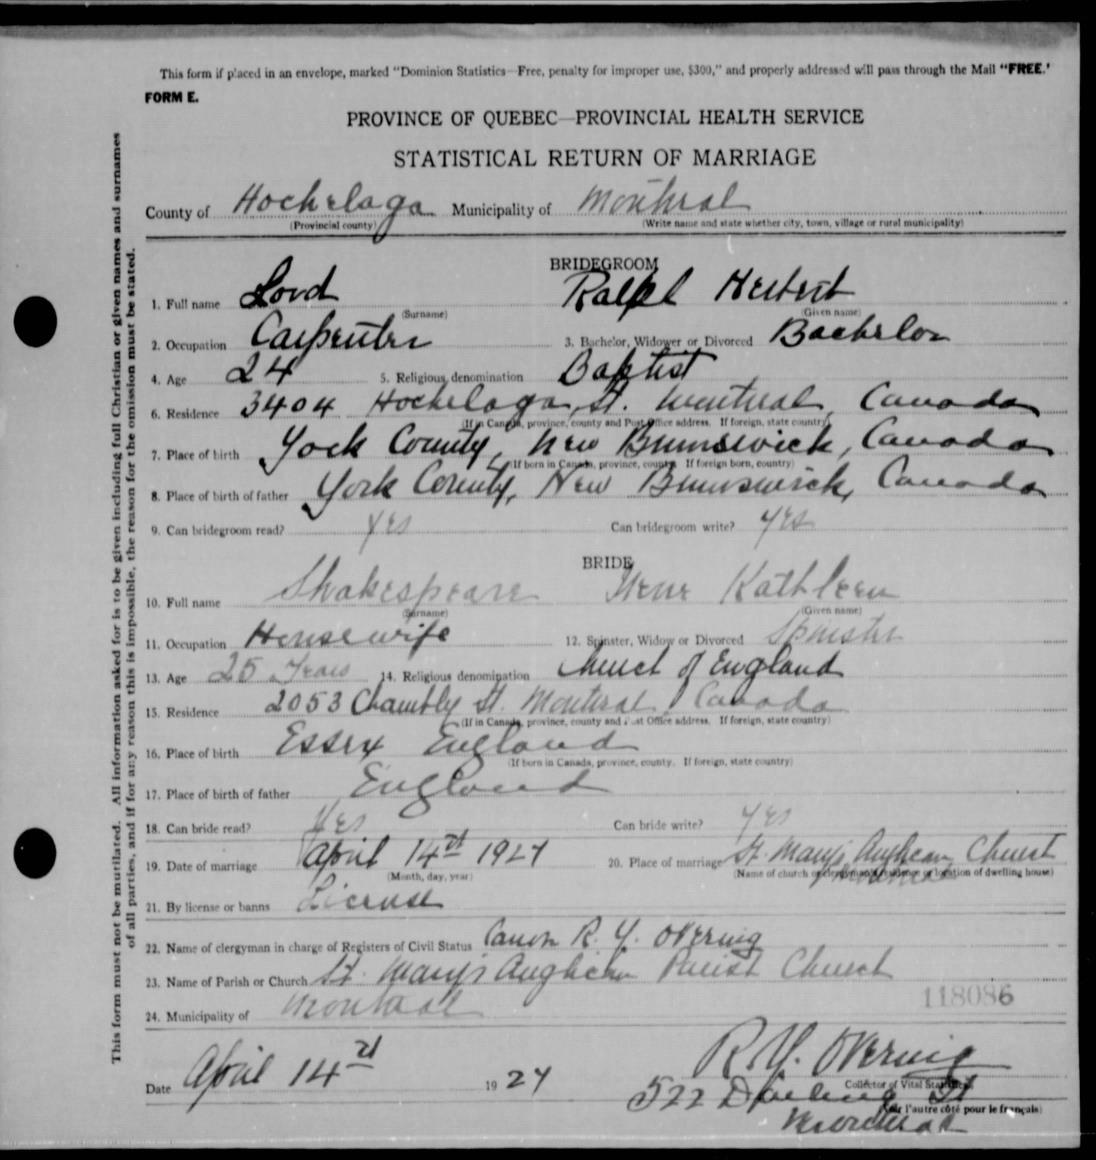 This form if placed in an envelope, marked "Dominion Statistics—Free, penalty for improper use, $300," and properly addressed will pass through the Mail "FREE.'
FORM E.
PROVINCE OF QUEBEC—PROVINCIAL HEALTH SERVICE
STATISTICAL RETURN OF MARRIAGE
County of Hochelaga Municipality of Montreal
(Provincial county) (Write name and state whether city, town, village or rural municipality)
BRIDEGROOM
1. Full name Lord Ralph Herbert
(Surname) (Given name)
2. Occupation Carpenter 3. Bachelor, Widower or Divorced Bachelor
4. Age 24 5. Religious denomination Baptist
6. Residence 3404 Hochelaga St. Montreal, Canada
(If in Canada, province, county and Post Office address. If foreign, state country)
7. Place of birth York County, New Brunswick, Canada
(If born in Canada, province, county. If foreign born, country)
8. Place of birth of father York County, New Brunswick, Canada
9. Can bridegroom read? Yes Can bridegroom write? Yes
BRIDE
10. Full name Shakespeare Irene Kathleen
(Surname) (Given name)
11. Occupation Housewife 12. Spinster, Widow or Divorced Spinster
13. Age 25 Years 14. Religious denomination Church of England
15. Residence 2053 Chambly St. Montreal, Canada
(If in Canada, province, county and Post Office address. If foreign, state country)
16. Place of birth Essex England
(If born in Canada, province, county. If foreign, state country)
17. Place of birth of father England
18. Can bride read? Yes Can bride write? Yes
19. Date of marriage April 14 20. Place of marriage St. Mary's Anglican Church
(Month, day, year) (Name of church or clergyman's residence or location of dwelling house)
Montreal
21. By license or banns License
22. Name of clergyman in charge of Registers of Civil Status Canon R. Y. Overing
23. Name of Parish or Church St. Mary's Anglican Parish Church
24. Municipality of Montreal
118086
R. Y. Overing
Date April 14 19
Collector of Vital Statistics
522 St
(Voir l'autre côté pour le français)
Montreal
This form must not be mutilated. All information asked for is to be given including full Christian or given names and surnames
of all parties, and if for any reason this is impossible, the reason for the omission must be stated.